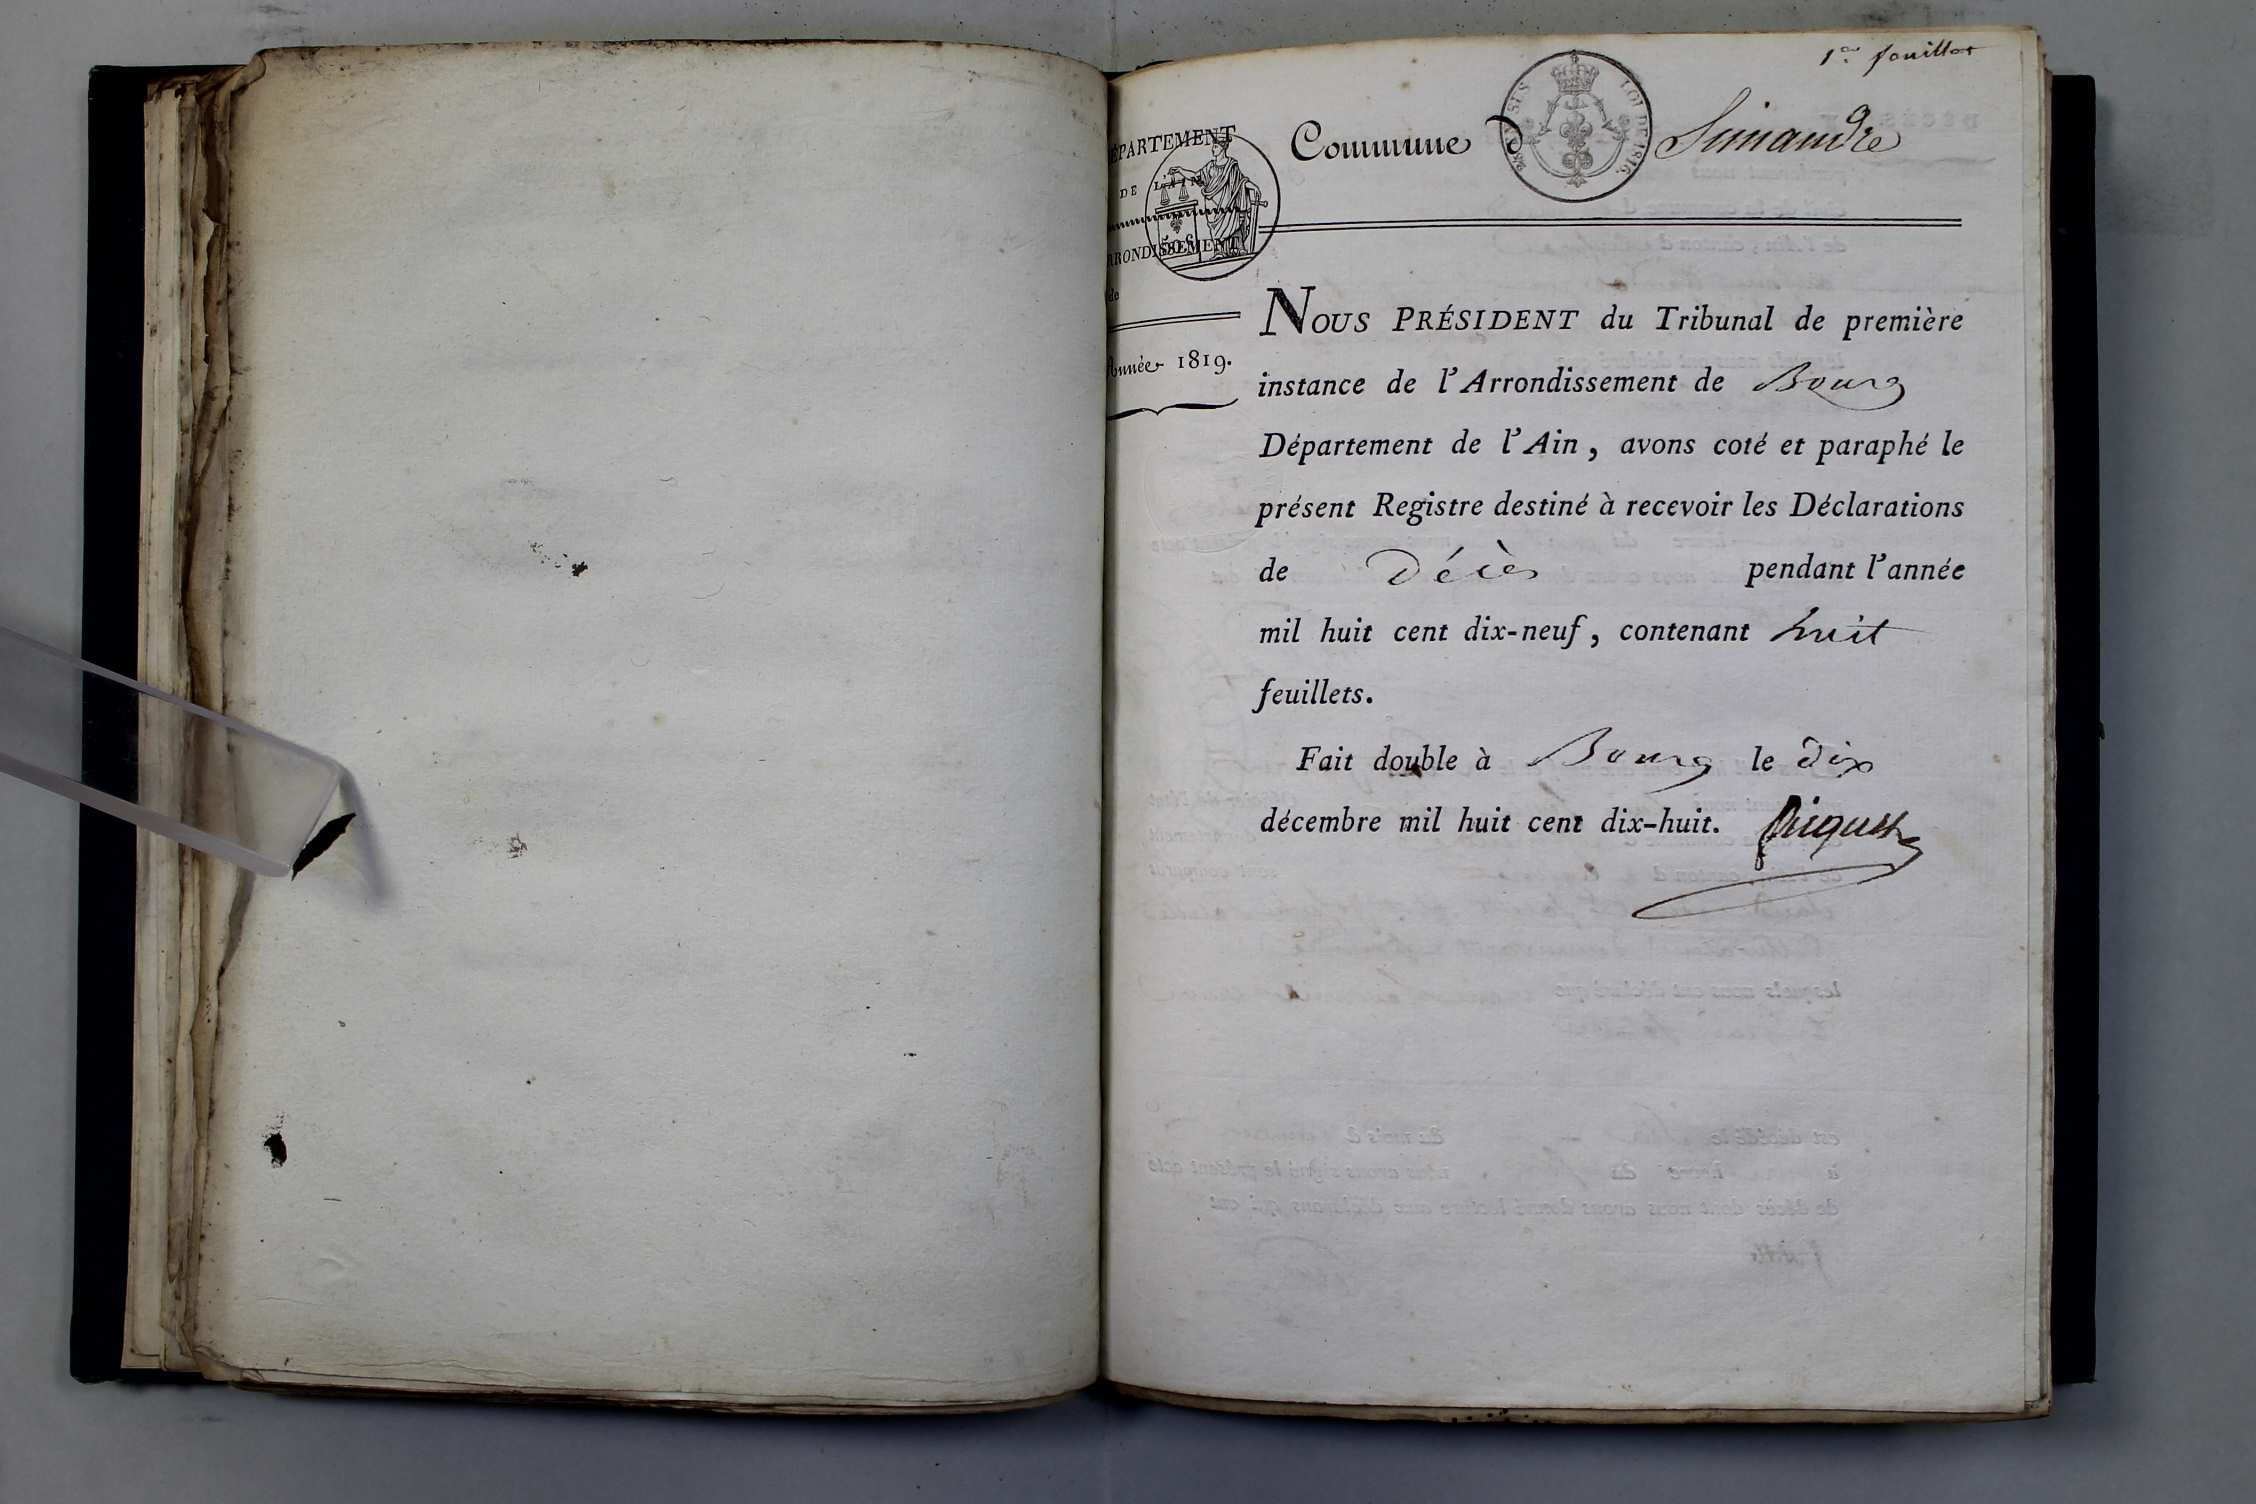 1er feuillet
Commune de Simandre
LOI DE 1816.
DÉPARTEMENT
DE L'AIN
50 c
ARRONDISSEMENT
de
Année 1819.
NOUS PRÉSIDENT du Tribunal de première
instance de l'Arrondissement de Bourg
Département de l'Ain, avons coté et paraphé le
présent Registre destiné à recevoir les Déclarations
de Décès pendant l'année
mil huit cent dix-neuf, contenant huit
feuillets.
Fait double à Bourg le dix
décembre mil huit cent dix-huit.